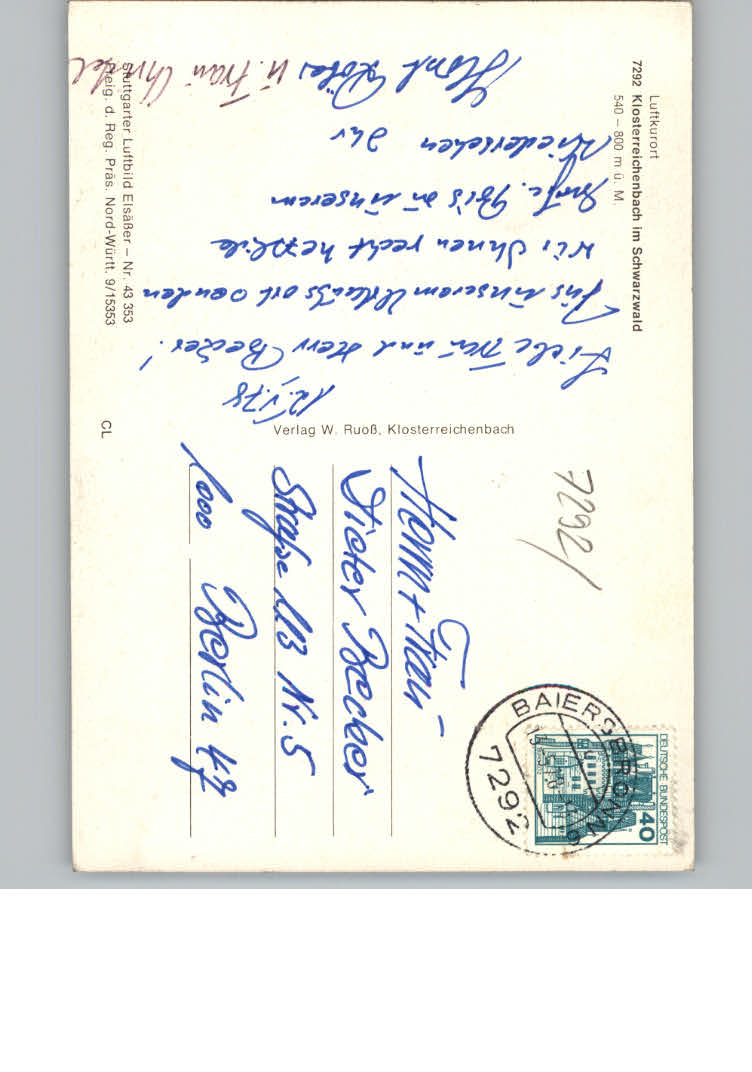 Luftkurort
7292 Klosterreichenbach im Schwarzwald
540 – 800 m ü. M.
12.V.78
Liebe Frau und Herr Becker!
Aus unserem Urlaubsort senden
wir Ihnen recht herzliche
Grüße. Bis zu unserem
Wiedersehen Ihr
Horst
u. Frau
Stuttgarter Luftbild Elsäßer – Nr. 43 353
Freig. d. Reg. Präs. Nord-Württ. 9/15353
Verlag W. Ruoß, Klosterreichenbach
CL
7292/
DEUTSCHE BUNDESPOST
40
BAIERSBRONN
7292
Herrn + Frau
Dieter Becker
Straße 113 Nr. 5
1000 Berlin 47